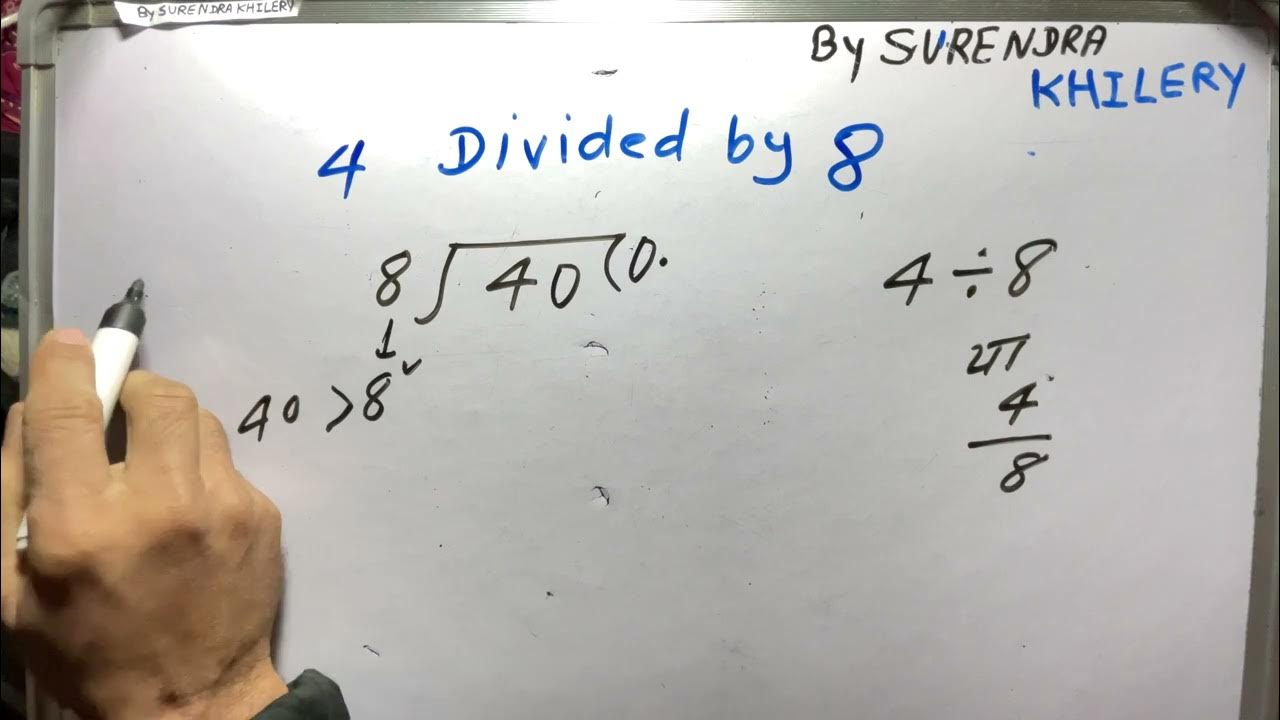 By SURENDRA KHILERY
By SURENDRA
KHILERY
4 Divided by 8
8 ) 40 ( 0.
1
40 > 8 ✓
4 ÷ 8
या
4
8